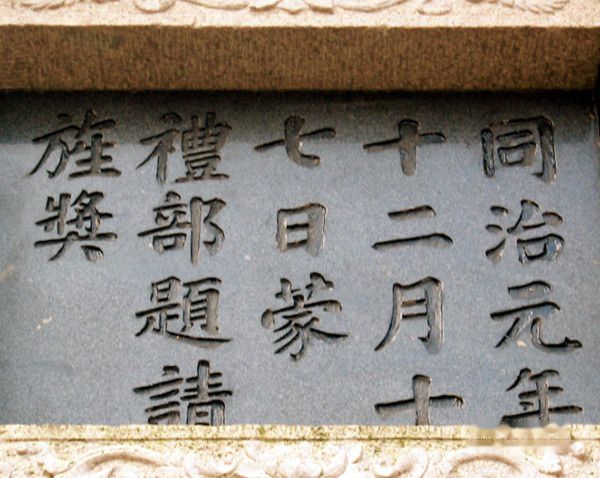 同治元年
十二月十
七日蒙
禮部題請
旌獎